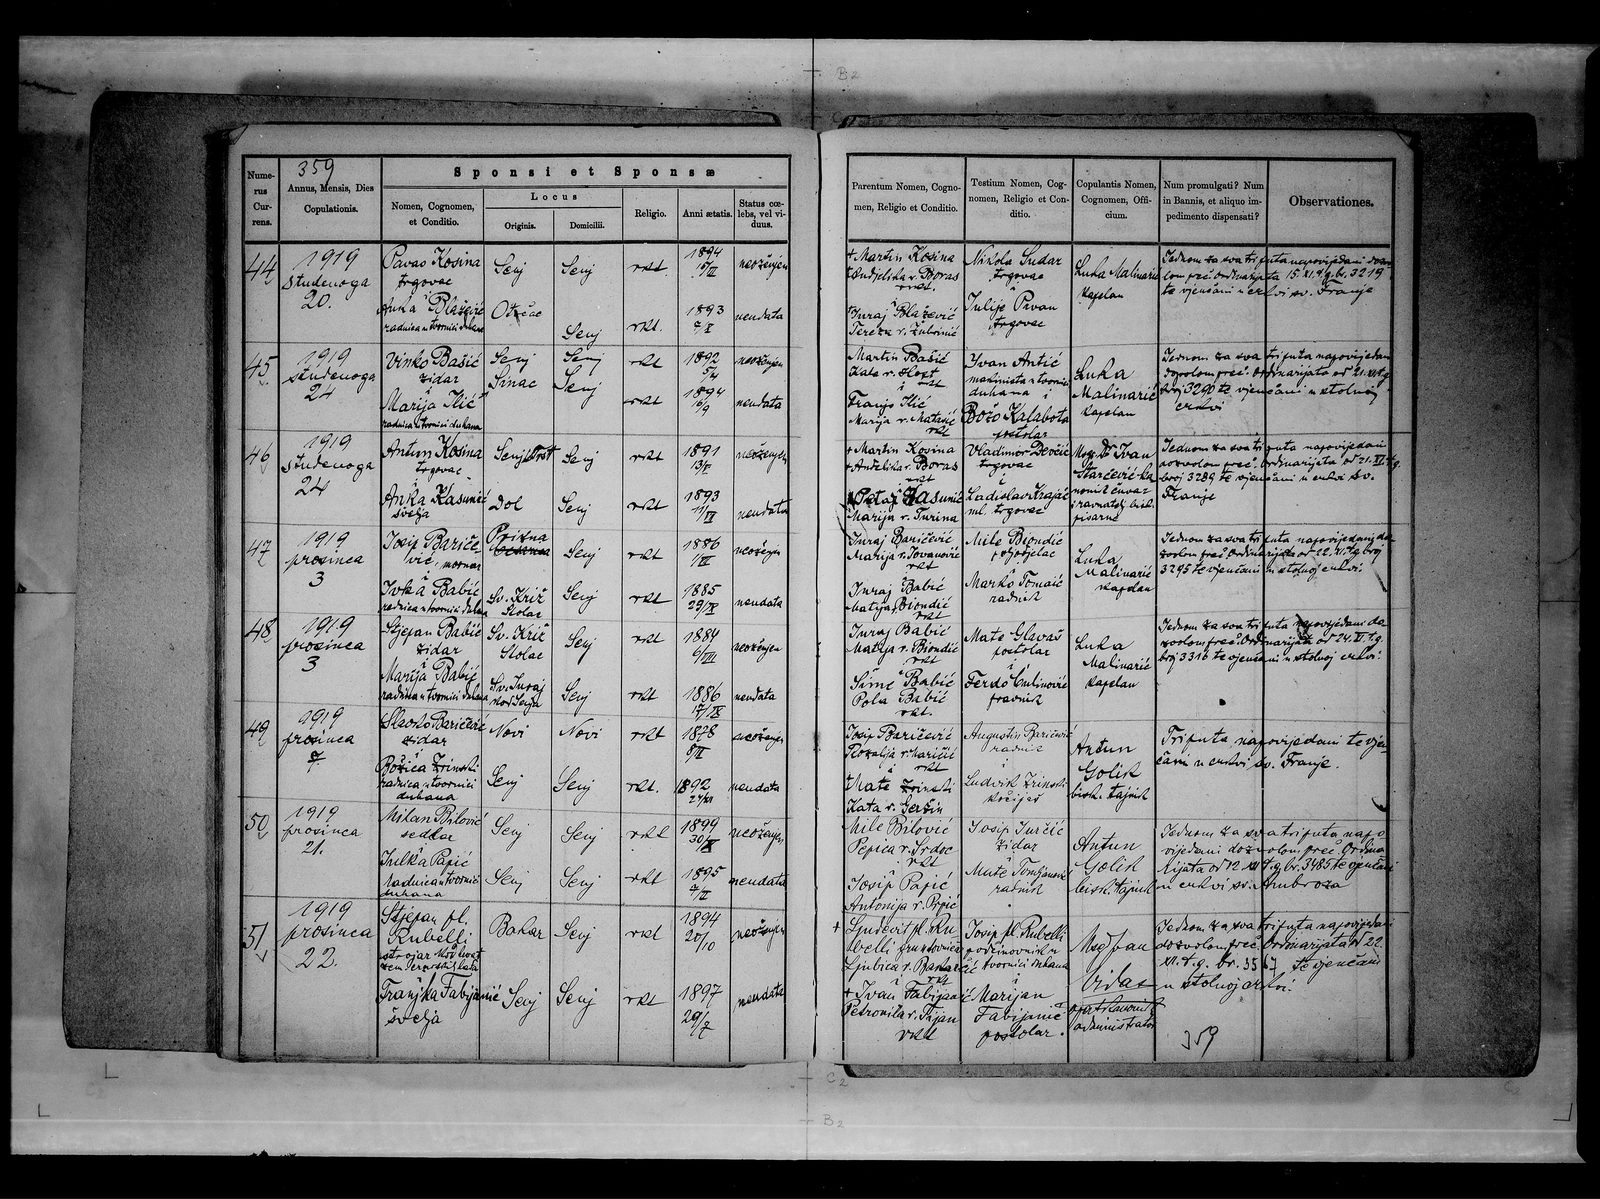 359
Sponsi et Sponsæ
Nume-
rus
Cur-
rens.
Annus, Mensis, Dies
Copulationis.
Nomen, Cognomen,
et Conditio.
Locus
Originis.
Domicilii.
Religio.
Anni ætatis.
Status cœ-
lebs, vel vi-
duus.
Parentum Nomen, Cogno-
men, Religio et Conditio.
Testium Nomen, Cog-
nomen, Religio et Con-
ditio.
Copulantis Nomen,
Cognomen, Offi-
cium.
Num promulgati? Num
in Bannis, et aliquo im-
pedimento dispensati?
Observationes.
44
1919
studenoga
20.
Pavao Kosina
trgovac
Senj
Senj
rkt.
1894
neoženjen
+ Martin Kosina
Andjelika r. Boras
rkt.
Nikola Sudar
trgovac
Luka Malinarić
kapelan
Jednom za sva tri puta napovijedani
Ordinarijata 15. XI. t.g. br. 3219
te vjenčani u crkvi sv. Franje
i
Anka Blažević
radnica u tvornici duhana
Otočac
Senj
rkt.
1893
neudata
Juraj Blažević
Tereza r.
Julije Prvan
trgovac
45
1919
studenoga
24
Vinko Bašić
zidar
Senj
Senj
rkt
1892
5/4
neoženjen
Martin Bašić
Kata r.
rkt
Ivan Antić
mašinista u tvornici
duhana i
Luka
Malinarić
kapelan
Jednom za sva tri puta napovijedani
dozvolom preč. Ordinarijata od 21. XI. t.g.
broj 3290 te vjenčani u stolnoj
crkvi
Marija Ilić
radnica u tvornici duhana
Sinac
Senj
rkt
1894
16/9
neudata
Franjo Ilić
Marija r. Matašić
rkt
Božo Kalabota
postolar
46
1919
studenoga
24
Antun Kosina
trgovac
Senj
Senj
rkt
1891
neoženjen
+ Martin Kosina
+ Andjelika r. Boras
rkt
Vladimir Devčić
trgovac
i
Msg. Dr Ivan
Starčević ka-
nonik čuvar
i ravnatelj bisk.
pisarne
Jednom za sva tri puta napovijedani
dozvolom preč. Ordinarijata od 21. XI. t.g.
broj 3289 te vjenčani u crkvi sv.
Franje
Anka Kasumić
švelja
Dol
Senj
rkt
1893
11/IX
neudata
Petar Kasunić
Marija r. Turina
Ladislav Krajač
ml. trgovac
47
1919
prosinca
3
Josip Bariče-
vić, mornar
Prizna
Senj
rkt
1886
neoženjen
Juraj Baričević
Marija r. Jovanović
rkt
Mile Biondić
Luka
Malinarić
kapelan
Jednom za sva tri puta napovijedani do-
zvolom preč. Ordinarijata od 22. XI. t.g. broj
3295 te vjenčani u stolnoj crkvi.
i
Ivka Babić
radnica u tvornici duhana
Sv. Križ
Stolac
Senj
rkt
1885
29/IX
neudata
Juraj Babić
Matija Biondić
rkt
Marko Tomaić
radnik
48
1919
prosinca
3
Stjepan Babić
zidar
Sv. Križ
Stolac
Senj
rkt
1884
6/VIII
neoženjen
Juraj Babić
Matija r. Biondić
rkt
Mate Glavaš
postolar
i
Luka
Malinarić
kapelan
Jednom za sva tri puta napovijedani do
zvolom preč. Ordinarijata od 24. XI. t.g.
broj 3316 te vjenčani u stolnoj crkvi.
Marija Babić
radnica u tvornici duhana
Sv. Juraj
kod Senja
Senj
rkt
1886
17/IX
neudata
Sime Babić
Pola Babić
rkt.
Ferdo
pravnik
49
1919
prosinca
7.
Slavko Baričević
zidar
Novi
Novi
rkt
1878
8/II
neoženjen
Josip Baričević
Rozalija r. Maričić
rkt
Augustin Baričević
radnik
i
Antun
Golik
bisk. tajnik
Triputa napovijedani te vjen-
čani u crkvi sv. Franje.
Božica Zrinski
radnica u tvornici
duhana
Senj
Senj
rkt.
1892
24/XI
neudata
+ Mate Zrinski
Kata r. Geržin
Ludvik Zrinski
50
1919
prosinca
21.
Milan Bilović
sedlar
Senj
Senj
rkt
1899
30/IX
neoženjen
Mile Bilović
Pepica r. Srdoc
rkt
Josip Jurčić
zidar
Antun
Golik
bisk. tajnik
Jednom za sva tri puta napo-
vijedani dozvolom preč. Ordina-
rijata od 12. XII. t.g. br. 3485 te vjenčani
u crkvi sv. Ambroza
Julka Papić
radnica u tvornici
duhana
Senj
Senj
rkt
1895
neudata
Josip Papić
Antonija r. Prpić
Mate Tomljanović
radnik
51
1919
prosinca
22.
Stjepan pl.
Rubelli
strojar
Bakar
Senj
rkt
1894
20/10
neoženjen
+ Ljudevit pl. Ru-
belli
Ljubica r. Bakarčić
rkt
Josip pl. Rubelli
tvornici duhana
i
Msg. Ivan
Vidas
administrator
Jednom za sva tri puta napovijedani
dozvolom preč. Ordinarijata od 22.
XII. t.g. br. 3567 te vjenčani
u stolnoj crkvi.
Franjka Fabijanić
švelja
Senj
Senj
rkt
1897
29/7
neudata
+ Ivan Fabijanić
Petronila r. Stipan
rkt
Marijan
Fabijanić
postolar
359